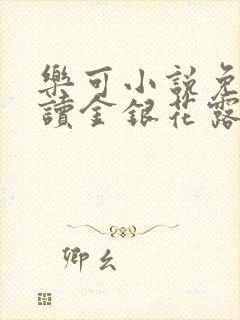 樂可小說免
讀金銀花露
卿幺